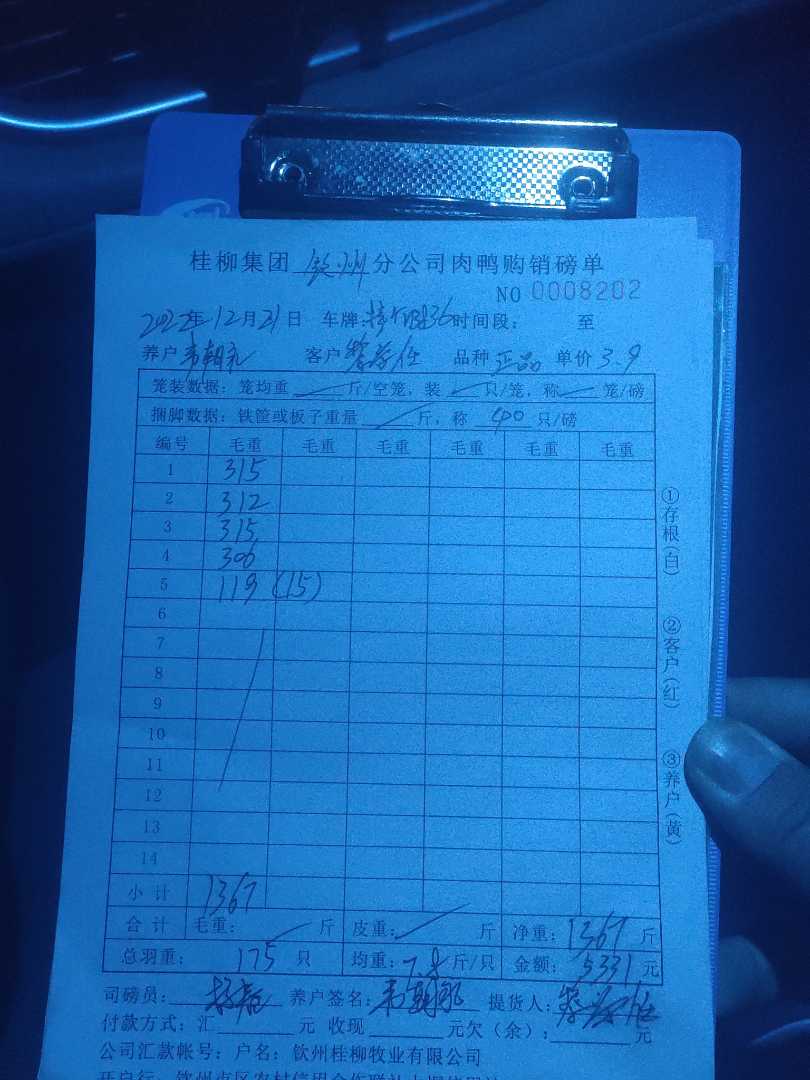 桂柳集团 钦州 分公司肉鸭购销磅单
NO 0008202
2022年12月21日 车牌: 36 时间段: 至
养户 韦朝礼 客户 黎 任 品种 正品 单价 3.9
笼装数据: 笼均重 斤/空笼, 装 只/笼, 称 笼/磅
捆脚数据: 铁筐或板子重量 斤, 称 40 只/磅
编号 毛重 毛重 毛重 毛重 毛重 毛重
1 315
2 312
3 315
4 306
5 119 (15)
6
7
8
9
10
11
12
13
14
小计 1367
合计 毛重: 斤 皮重: 斤 净重: 1367 斤
总羽重: 175 只 均重: 7.8 斤/只 金额: 5331 元
司磅员: 养户签名: 韦朝礼 提货人: 黎 任
付款方式: 汇 元 收现 元欠(余): 元
公司汇款帐号: 户名: 钦州桂柳牧业有限公司
①存根(白)
②客户(红)
③养户(黄)